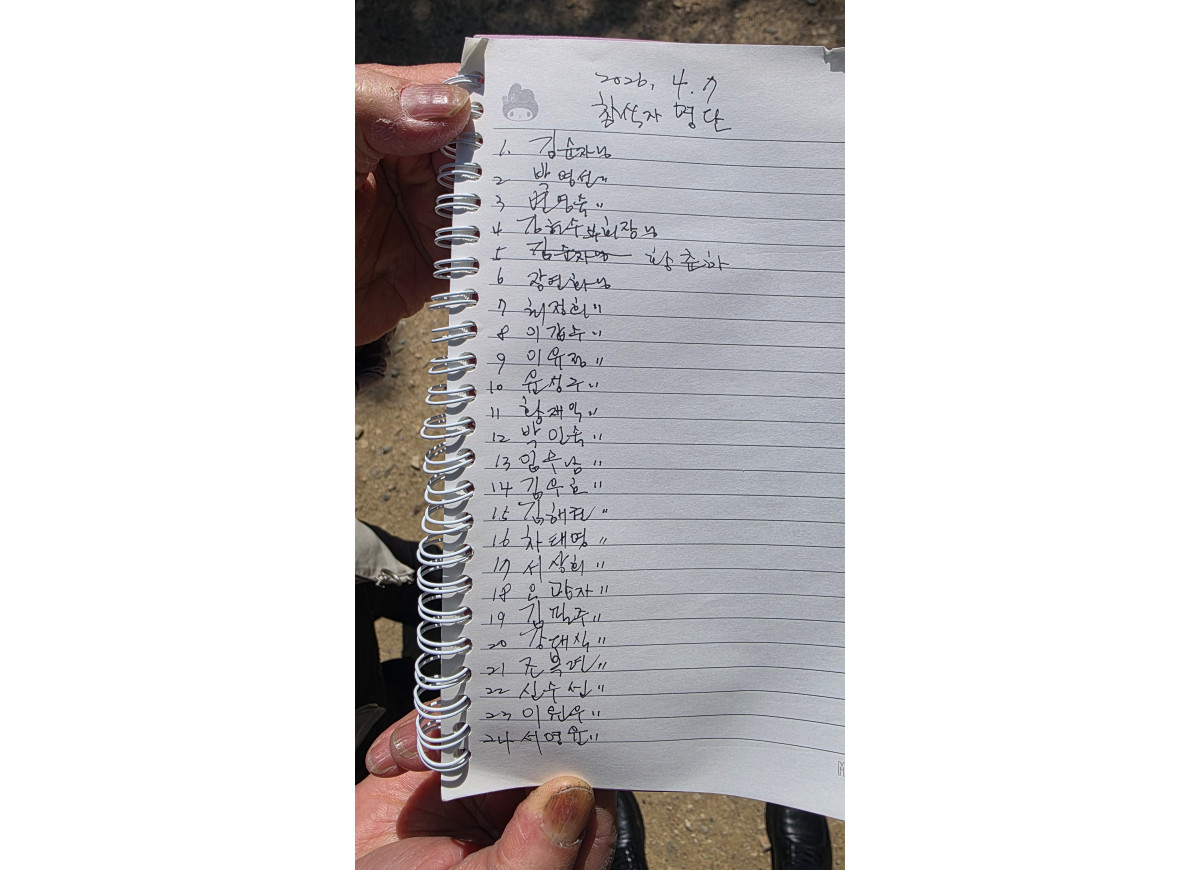 2026. 4. 7
참석자 명단
1. 김순자님
2 박영선 〃
3 변영숙 〃
4 김현수부회장님
5 김순자님 황춘하
6 장연화님
7 최정희 〃
8 이갑수 〃
9 이유정 〃
10 윤성구 〃
11 황재익 〃
12 박인숙 〃
13 임우남 〃
14 김우호 〃
15 김해련 〃
16 차태영 〃
17 서상희 〃
18 은광자 〃
19 김필주 〃
20 강대식 〃
21 조복연 〃
22 신수선 〃
23 이원우 〃
24 서영완 〃